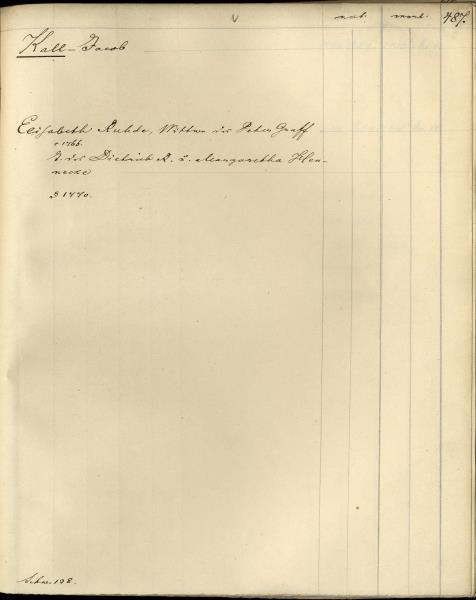 V nat. mort. 487.
Kall - Jacob
Elisabeth Ruhde, Wittwe des Peter Graff
v 1766.
T. des Dietrich R. u. Margaretha Hen-
necke
B 1770.
108.